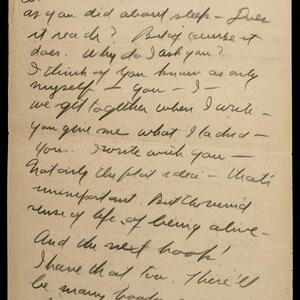 as you did about sleep – Does
it read? But of course it
does. Why do I ask you?
I think of you know as only
myself. I – you – I –
we get together when I write –
you give me what I lacked –
you. I write with you –
Not only the plot idea – that's
unimportant. But the
sense of life, of being alive –
And the next book!
I have that too. There'll
be many books